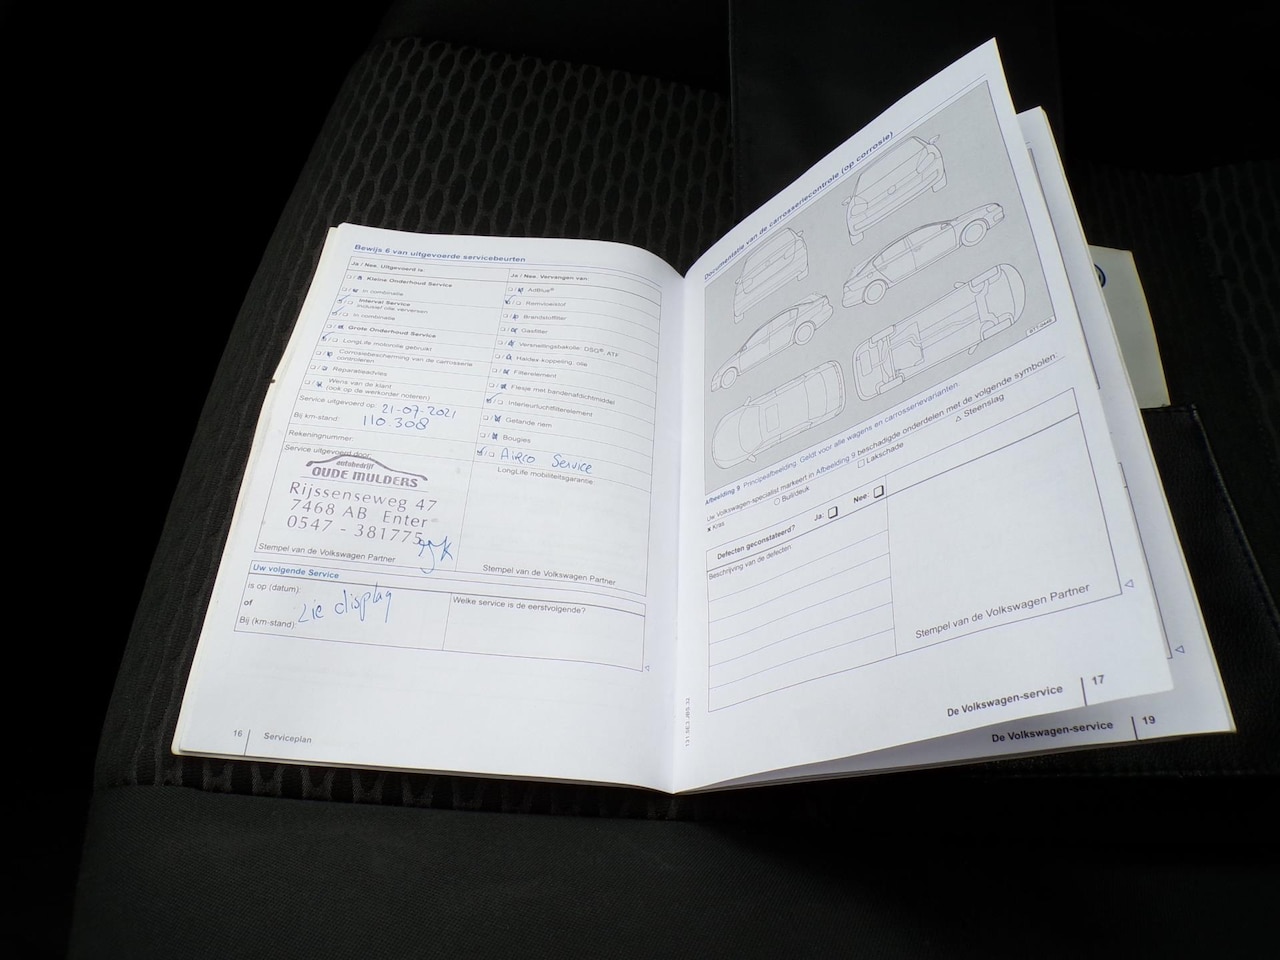 Bewijs 6 van uitgevoerde servicebeurten
Ja / Nee. Uitgevoerd is:
Kleine Onderhoud Service
in combinatie
Interval Service
inclusief olie verversen
in combinatie
Grote Onderhoud Service
LongLife motorolie gebruikt
Corrosiebescherming van de carrosserie
controleren
Reparatieadvies
Wens van de klant
(ook op de werkorder noteren)
Service uitgevoerd op: 21-07-2021
Bij km-stand: 110.308
Rekeningnummer:
Service uitgevoerd door:
autobedrijf
OUDE MULDERS
Rijssenseweg 47
7468 AB Enter
0547 - 381775
Stempel van de Volkswagen Partner
Ja / Nee. Vervangen van:
AdBlue®
Remvloeistof
Brandstoffilter
Gasfilter
Versnellingsbakolie: DSG®, ATF
Haldex-koppeling, olie
Filterelement
Flesje met bandenafdichtmiddel
Interieurluchtfilterelement
Getande riem
Bougies
Airco Service
LongLife mobiliteitsgarantie:
Stempel van de Volkswagen Partner
Uw volgende Service
is op (datum):
of
Bij (km-stand):
Zie display
Welke service is de eerstvolgende?
16 Serviceplan
Documentatie van de carrosseriecontrole (op corrosie)
Afbeelding 9 Principeafbeelding. Geldt voor alle wagens en carrosserievarianten
Uw Volkswagen-specialist markeert in Afbeelding 9 beschadigde onderdelen met de volgende symbolen:
× Kras ○ Buil/deuk □ Lakschade △ Steenslag
Defecten geconstateerd? Ja: Nee:
Beschrijving van de defecten
Stempel van de Volkswagen Partner
De Volkswagen-service 17
De Volkswagen-service 19